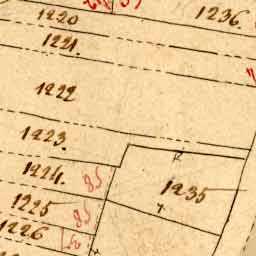 1220
1236
1221.
1222
1223.
1224.
85
1235
1225
85
1226